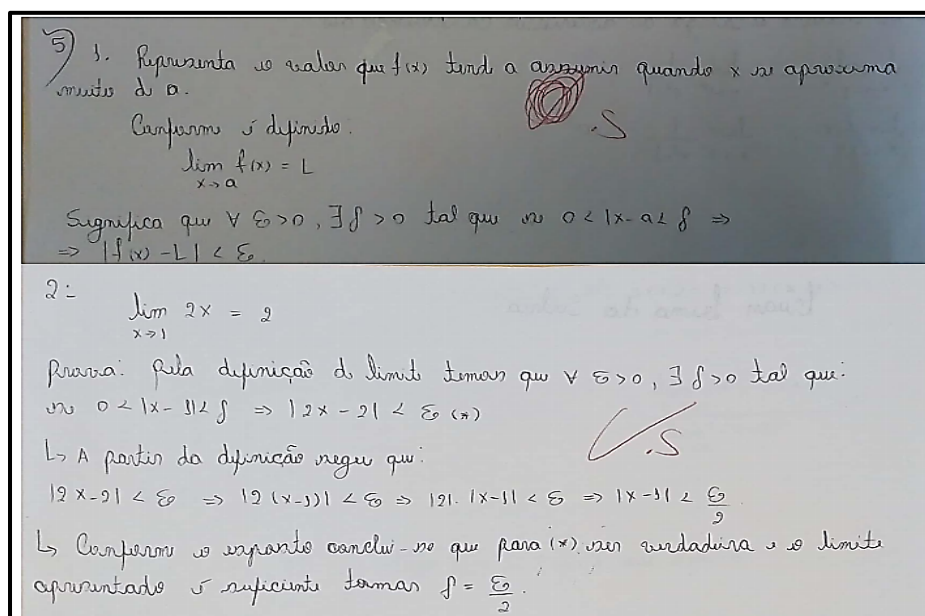 5) 1. Representa o valor que f(x) tend a assumir quando x se aproxima
muito d a.
Conform é definido:
lim f(x) = L
x→a
.S
Significa que ∀ ε>0, ∃ δ>0 tal que se 0<|x-a<δ ⇒
⇒ |f(x)-L| < ε.
2=
lim 2x = 2
x→1
Prova: Pela definição d limit temos que ∀ ε>0, ∃ δ>0 tal que:
se 0<|x-1|<δ ⇒ |2x-2| < ε (*)
.S
↳ A partir da definição segue que:
|2x-2| < ε ⇒ |2(x-1)| < ε ⇒ |2|.|x-1| < ε ⇒ |x-1| < ε/2
↳ Conform o exposto conclui-se que para (*) ser verdadeira e o limite
apresentado é suficiente tomar δ = ε/2.